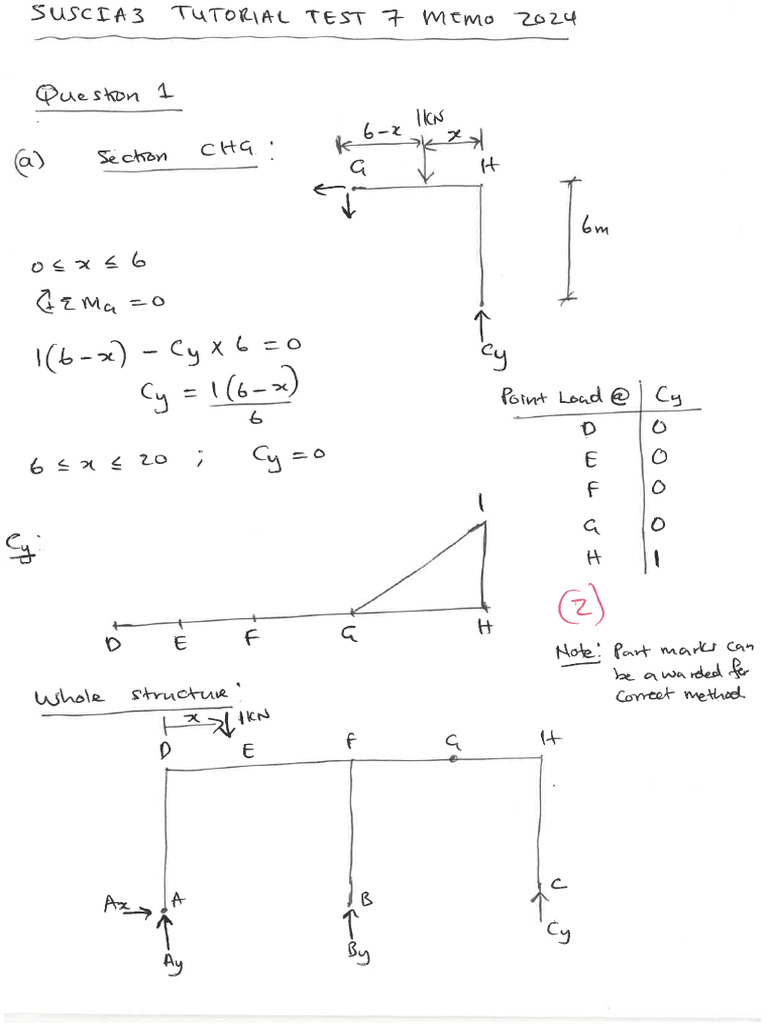 SUSCIA3 TUTORIAL TEST 7 MEMO 2024
Question 1
(a) Section CHG:
6-x 1KN x
G H
6m
Cy
0 ≤ x ≤ 6
↻+ ΣMG = 0
1(6-x) - Cy × 6 = 0
Cy = 1(6-x)
6
6 ≤ x ≤ 20 ; Cy = 0
Point Load @ Cy
D 0
E 0
F 0
G 0
H 1
Cy:
1
D E F G H
(2)
Note: Part marks can
be awarded for
correct method.
Whole structure:
x 1KN
D E F G H
Ax A B C
Ay By Cy